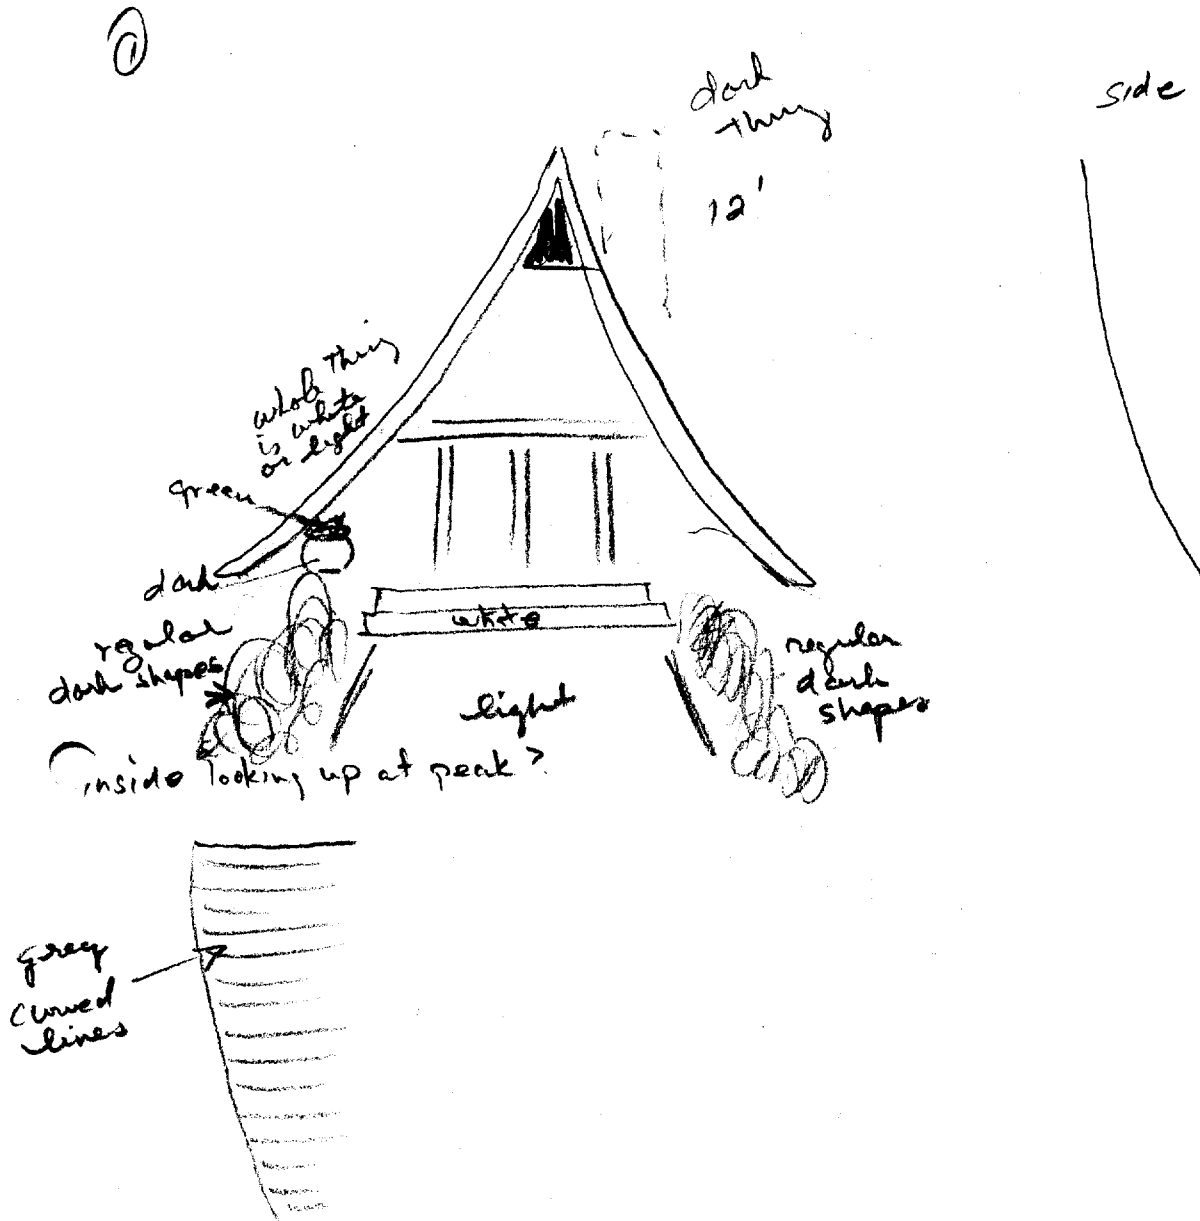 1
side
dark
thing
12'
whole thing
is white
or light
green
dark
regular
dark shapes
white
light
regular
dark
shapes
inside looking up at peak?
grey
curved
lines